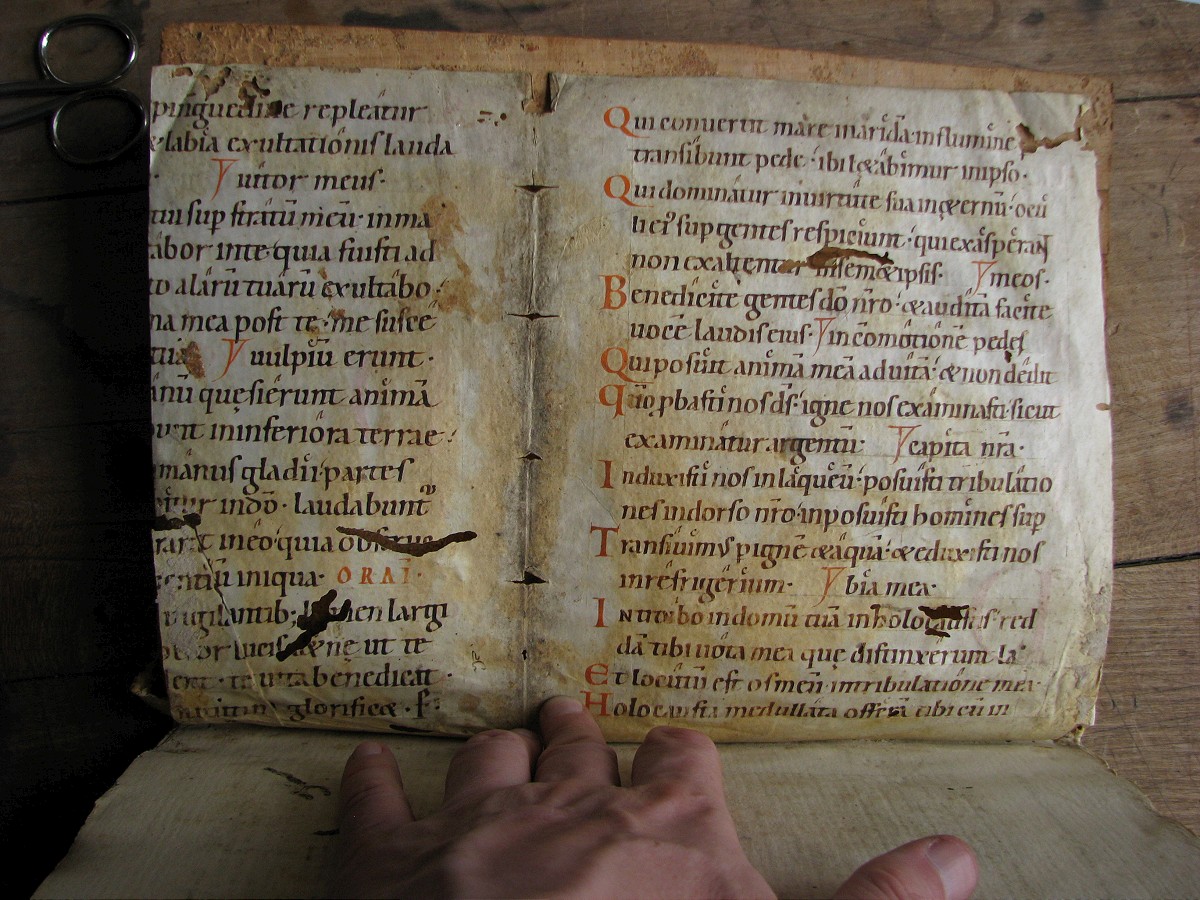 pinguedine repleatur
& labia exultationis lauda
Y uitor meus·
tui sup stratū meū· in ma
abor in te· quia fuisti ad
to alarū tuarū exultabo·
na mea post te· me susce
tua Y uulpiū erunt·
anū quęsierunt animā
bunt in inferiora terrae·
manus gladii· partes
etur in dō· laudabunt
rant in eo· quia
entiū iniqua· ORAT·
uigilantib; lumen largi
lucis ut te
ent· te uita benedicat·
glorificet·
Qui conuertit mare in aridā in flumine
transibunt pede· ibi lętabimur in ipso·
Qui dominatur in uirtute sua in ęternū· ocu
li ei᷒ sup gentes respiciunt· qui exasperant
non exaltentur in semetipsis· Y meos·
Benedicite gentes dō nrō· & auditā facite
uocē laudis eius· Y in cōmotionē pedes
Qui posuit animā meā ad uitā· & non dedit
Qm̄ ꝓbasti nos ds̄· igne nos examinasti sicut
examinatur argentū· Y capita nrā·
Induxisti nos in laqueū· posuisti tribulatio
nes in dorso nrō· inposuisti homines sup
Transiuimus p ignē & aquā· & eduxisti nos
in refrigeriū· Y bia mea·
Introibo in domū tuā in holocaustis· red
dā tibi uota mea quę distinxerunt la
Et locutū est os meū· in tribulatione mea·
Holocausta medullata offerā tibi cū in